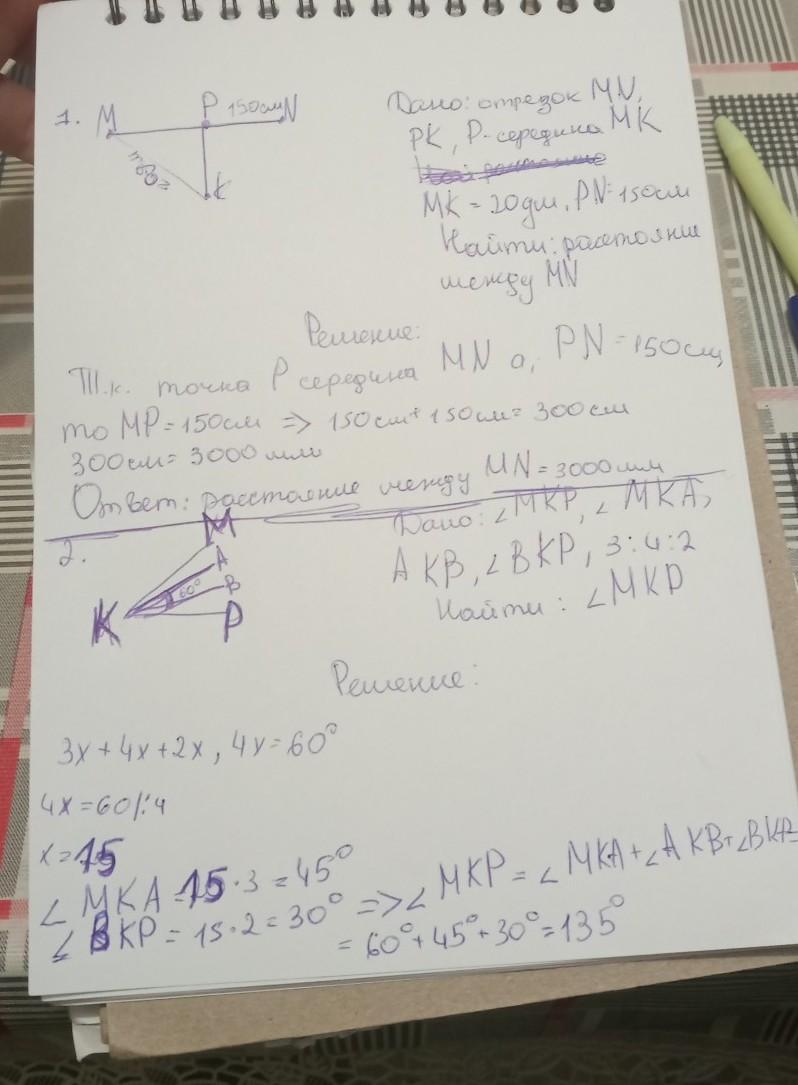 1. M P 150см N
K
Дано: отрезок MN,
PK, P-середина MK
MK = 20дм, PN=150см
Найти: расстояние
между MN
Решение:
Т.к. точка P середина MN а, PN=150см,
то MP=150см => 150см+150см=300см
300см=3000мм
Ответ: расстояние между MN=3000мм
2.
M
A
60°
B
K P
Дано: ∠MKP, ∠MKA,
AKB, ∠BKP, 3:4:2
Найти: ∠MKP
Решение:
3x+4x+2x, 4x=60°
4x=60/:4
x=15
∠MKA=15·3=45°
∠BKP=15·2=30° => ∠MKP=∠MKA+∠AKB+∠BKP=
=60°+45°+30°=135°